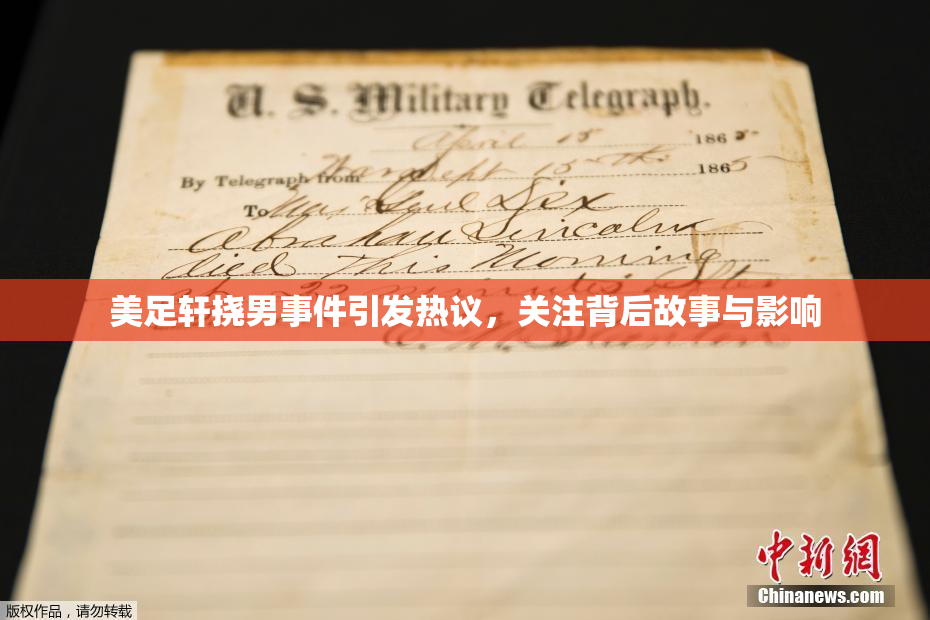 U. S. Military Telegraph.
April 15 1865
By Telegraph from War Dept 15th 1865
To Maj Genl Dix
Abraham Lincoln
died This Morning
at 22 minutes after
美足轩挠男事件引发热议，关注背后故事与影响
E. M. Stanton
中新网
Chinanews.com
版权作品，请勿转载